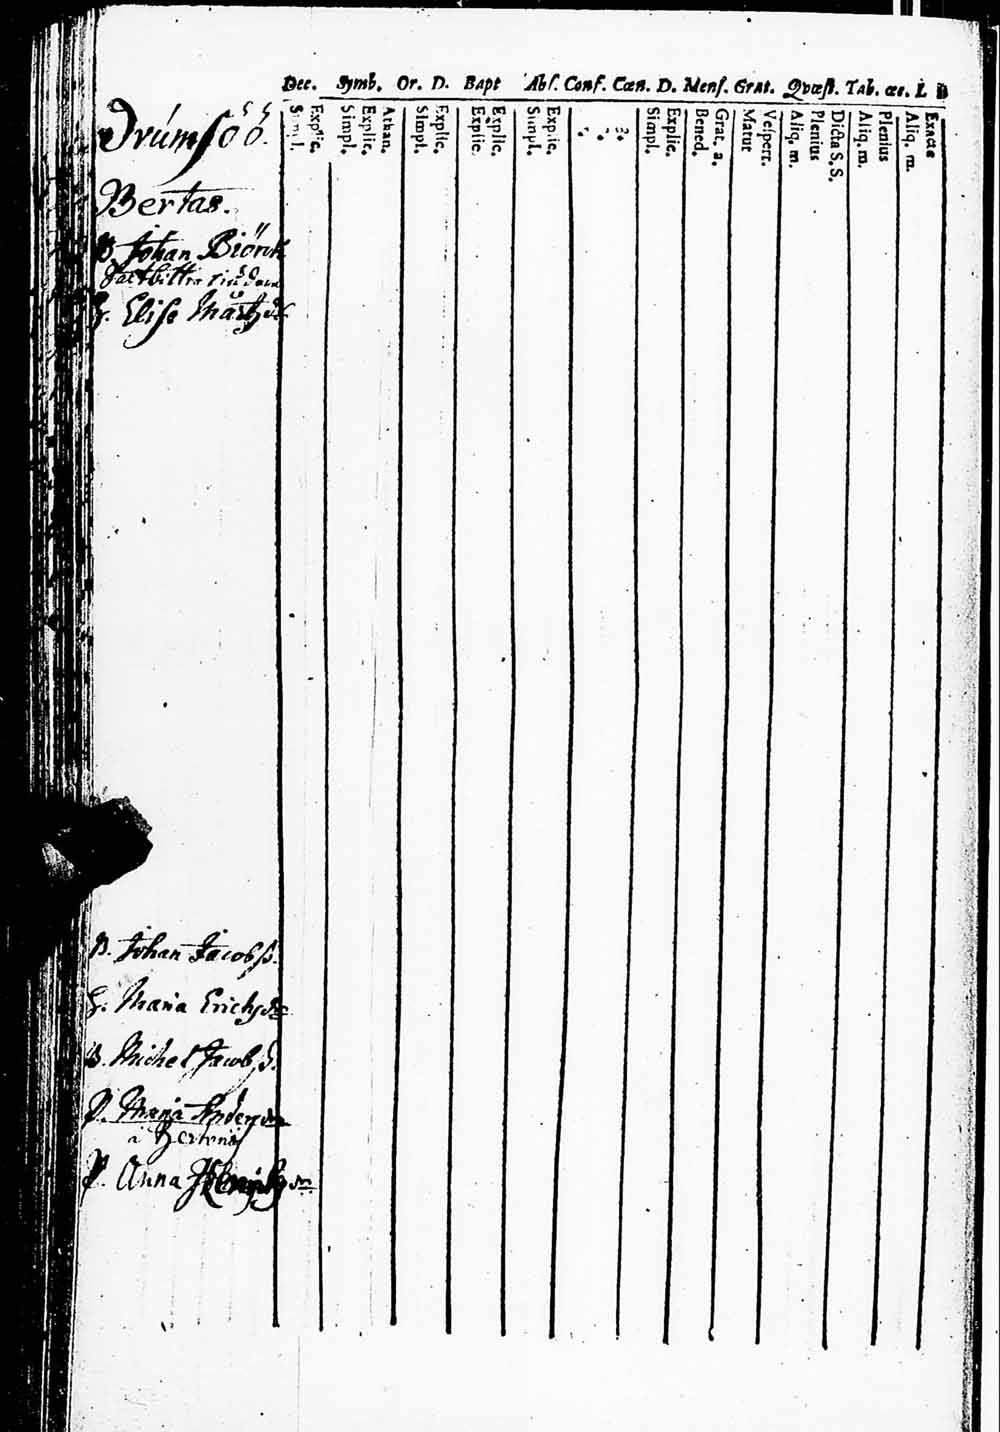 Dec. Symb. Or. D. Bapt Abs. Conf. Cœn. D. Mens. Grat. Qvæst. Tab. œc. L
Simpl. Explic. Simpl. Explic. Athan. Simpl. Explic. Explic. Explic. Simpl. Explic. 1. 2. 3. Simpl. Explic. Bened. Grat. a. Matut Vespert. Aliq. m. Plenius Dicta S.S. Aliq. m. Plenius Aliq. m. Exacte
Drúmsöö.
Bertas.
B. Johan Biörck
H. Elise Mårtzd
B. Johan Jacobss.
H. Maria Erichzdr
B. Michel Jacobs.
P. Maria Anderzdr
a
P. Anna